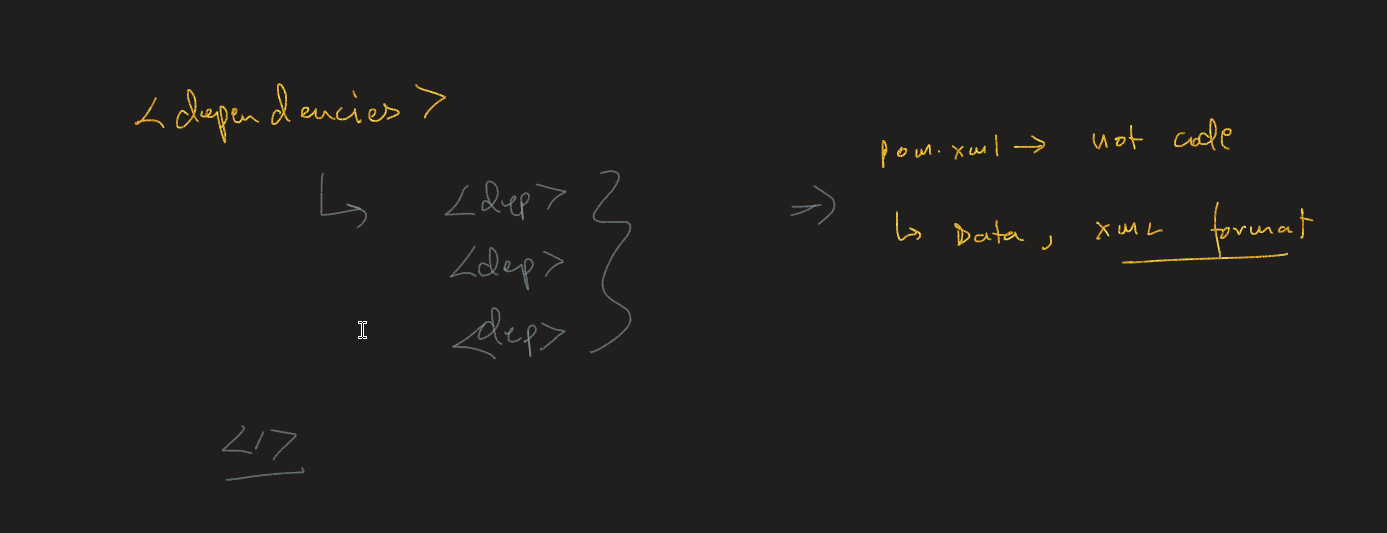 <dependencies>
↳ <dep>
<dep>
<dep>
</>
⇒ pom.xml → not code
↳ Data, XML format